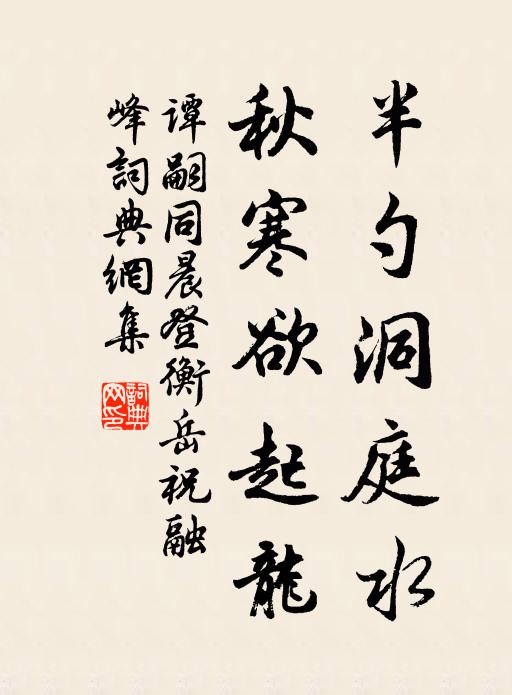 半勺洞庭水
秋寒欲起龍
谭嗣同晨登衡岳祝融
峰詞典網集
詞典网印